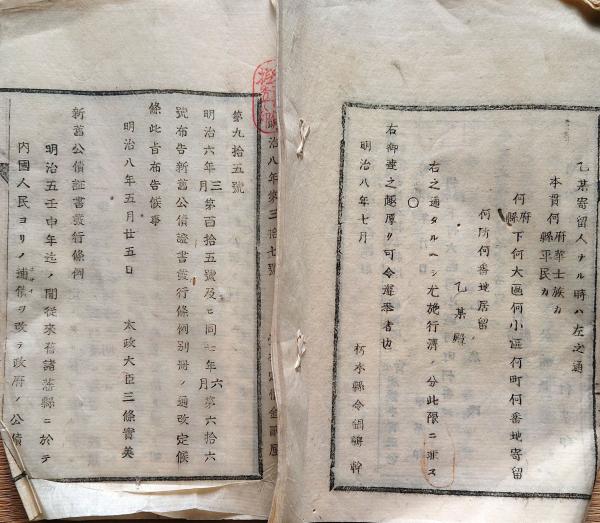 乙某寄留人ナル時ハ左之通
本貫何府華士族カ
何縣平民カ
何府縣下何大區何小區何町何番地寄留
何所何番地居留
乙某殿
右之通タルヘシ尤施行濟ノ分此限ニ非ス
○
右御達之趣厚ク可令遵奉者也
明治八年七月
朽木縣令鍋嶋幹
明治八年第三拾七號
第九拾五號
明治六年三月第百拾五號及ヒ同七年六月第六拾六
號布告新舊公債證書發行條例別冊ノ通改定候
條此旨布告候事
明治八年五月廿五日
太政大臣三條實美
新舊公債証書發行條例
明治五壬申年迄ノ間従来舊諸藩縣ニ於テ
內國人民ヨリノ逋債ヲ改テ政府ノ公債